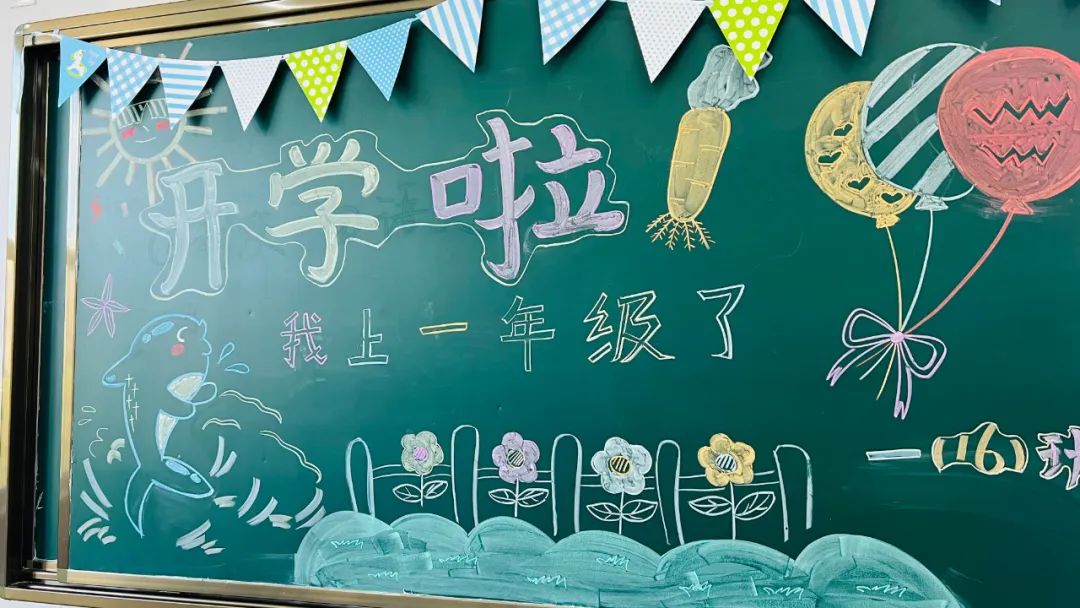 开学啦
我上一年级了
一(6)班